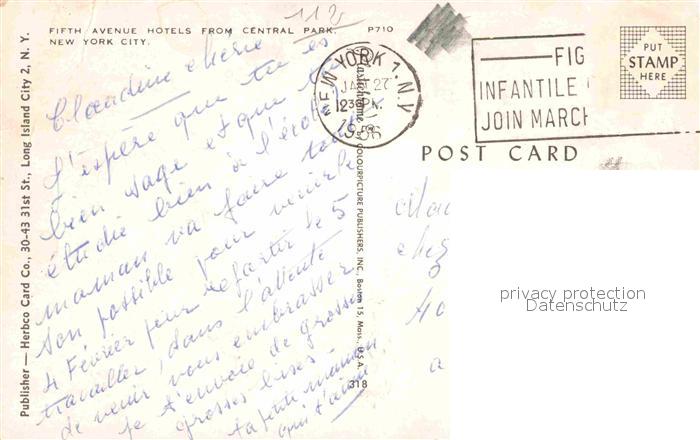 112
FIFTH AVENUE HOTELS FROM CENTRAL PARK,
NEW YORK CITY.
P710
Claudine cherie
J'espère que tu es
bien sage et que tu
étudie bien à l'école
maman va faire tout
son possible pour venir le
4 Février pour repartir le 5
travailler, dans l'attente
de venir vous embrasser
je t'envoie de grosse
grosses bises
ta petite maman
qui t'aime
Publisher — Herbco Card Co., 30-43 31st St., Long Island City 2, N. Y.
COLOURPICTURE PUBLISHERS, INC., Boston 15, Mass., U.S.A.
318
NEW YORK 1. N.Y
JAN 27
1230 PM
1956
FIG
INFANTILE
JOIN MARCH
PUT
STAMP
HERE
POST CARD
privacy protection
Datenschutz